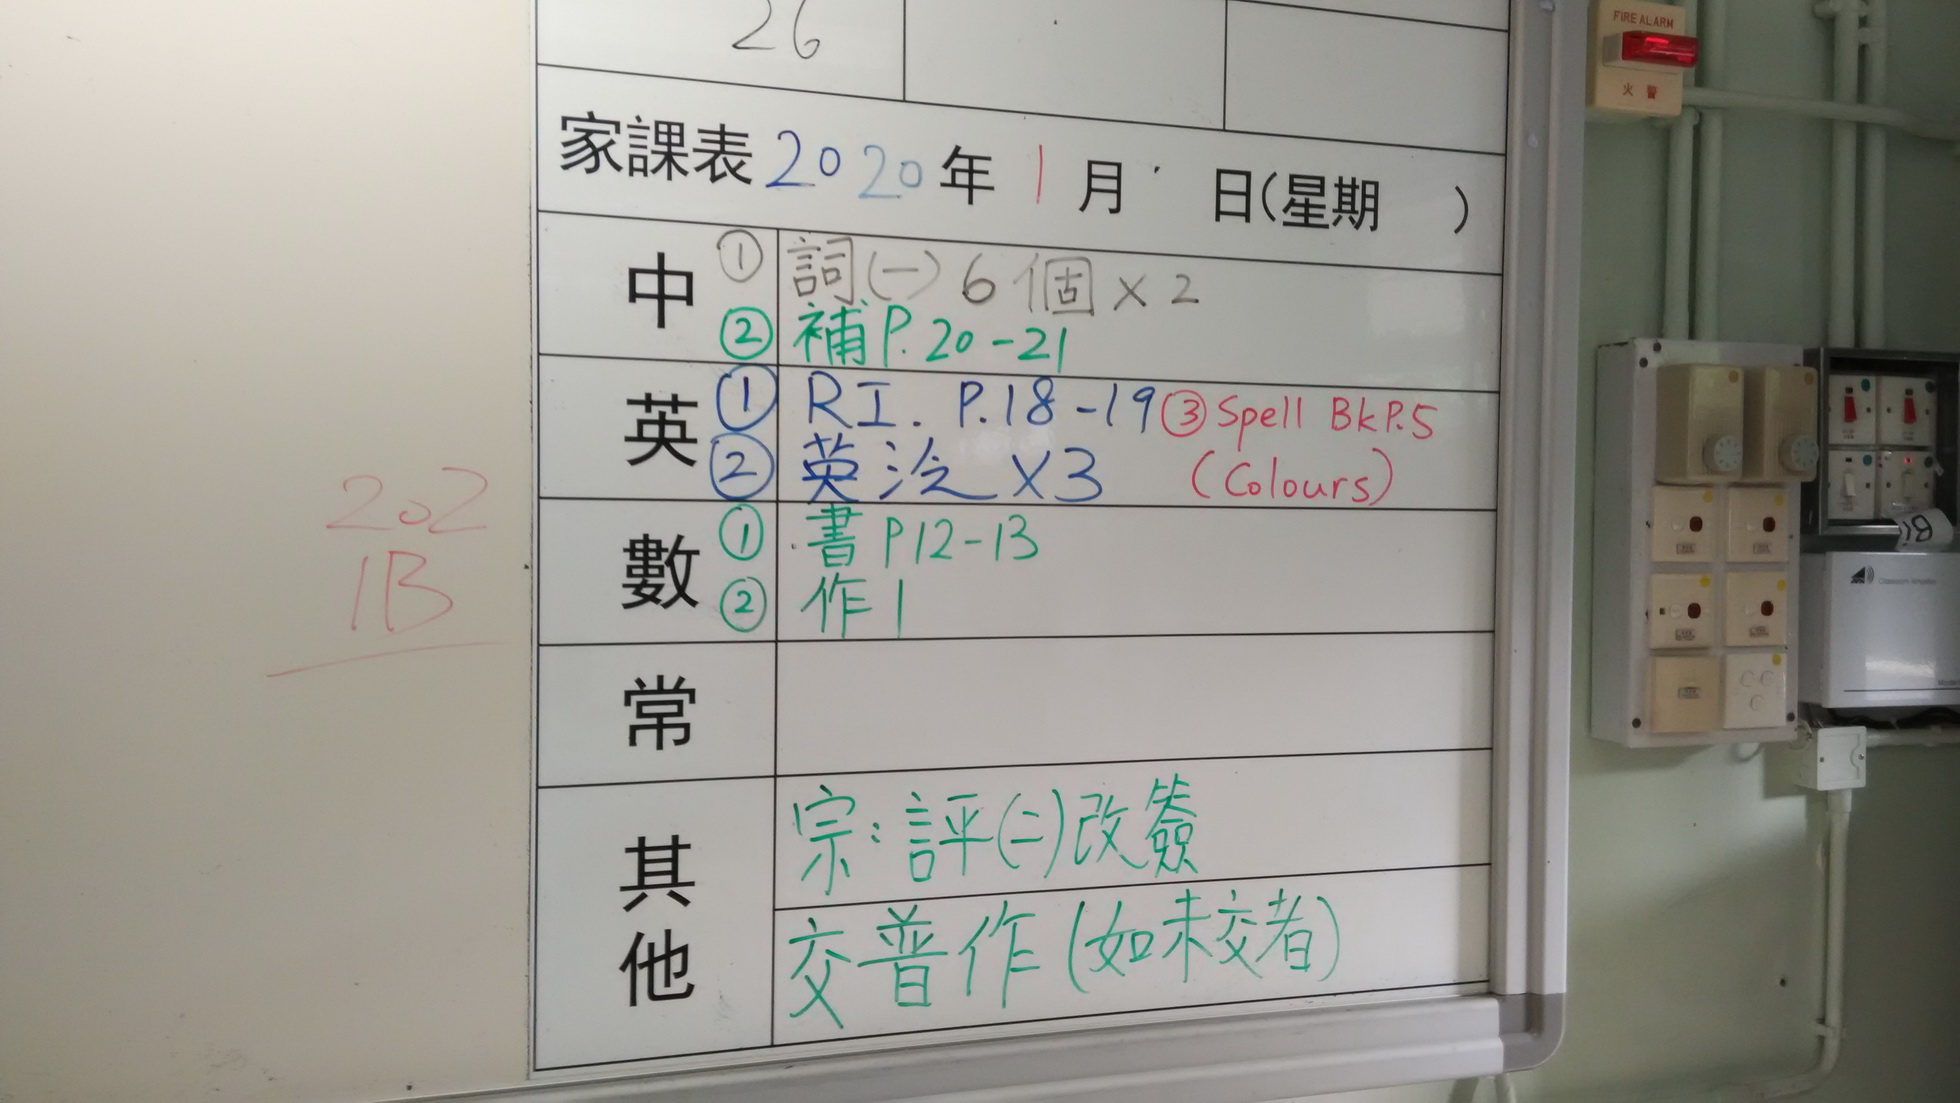 26
家課表 2020年 1月 日(星期 )
中 ① 詞(一)6個×2
② 補P.20-21
英 ① RI. P.18-19 ③ Spell Bk P.5
② 英泛 ×3 (Colours)
數 ① 書P12-13
② 作1
常
其他
宗:評(二)改簽
交普作(如未交者)
202
1B
FIRE ALARM
火警
1B